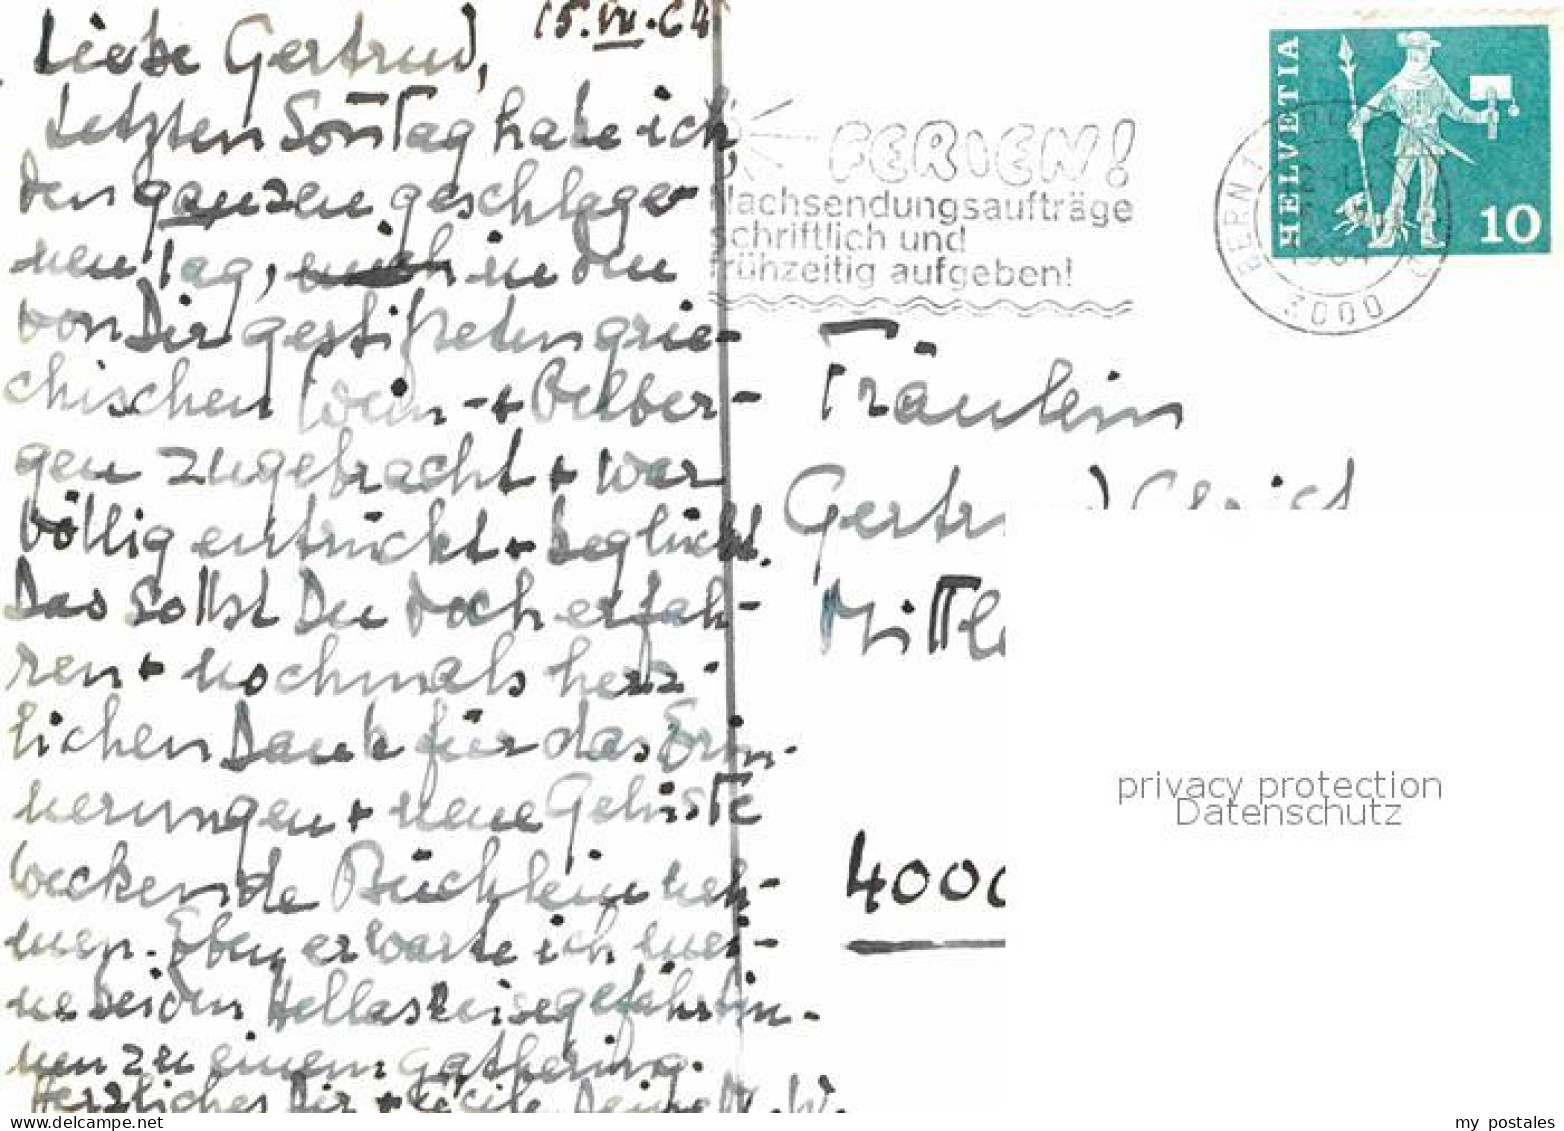 15.VII.64
Liebe Gertrud,
Letzten Sonntag habe ich
den ganzen geschlage-
nen Tag, in den
von Dir gestifteten grie-
chischen Wein- +
gen zugebracht + war
völlig entrückt + beglückt.
Das sollst Du doch erfah-
ren + nochmals herz-
lichen Dank für das Erin-
nerungen + neue Gelüste
weckende Büchlein neh-
men. Eben erwarte ich mei-
ne beiden Hellasreisegefährtin-
nen zu einem gathering.
Herzliches Dir + Cécile Deine M. W.
FERIEN!
Nachsendungsaufträge
schriftlich und
frühzeitig aufgeben!
HELVETIA
10
BERN 1
3000
Fräulein
Gertrud
4000
privacy protection
Datenschutz
www.delcampe.net
my_postales